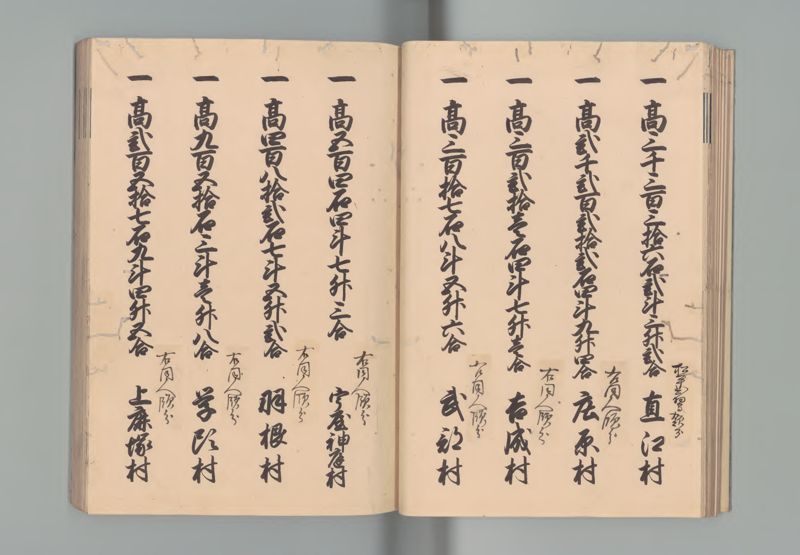 一 高三千三百三拾六石弐斗三升弐合 直江村
一 高弐千弐百弐拾弐石四斗九升四合 右同人領分 庄原村
一 高三百弐拾壱石四斗七升壱合 右同人領分 吉成村
一 高三百拾七石八斗五升六合 右同人領分 武部村
一 高五百四石四斗七升三合 右同人領分 宇屋神庭村
一 高四百八拾弐石七斗五升弐合 右同人領分 羽根村
一 高九百五拾石三斗壱升八合 右同人領分 学頭村
一 高弐百五拾七石九斗四升五合 右同人領分 上庄塚村